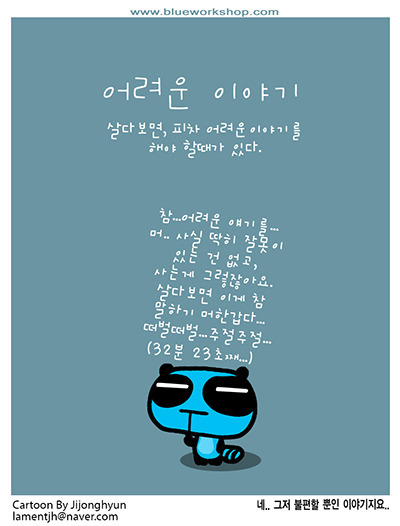 www.blueworkshop.com
어려운 이야기
살다보면, 피차 어려운 이야기를
해야 할때가 있다.
참...어려운 얘기를...
머.. 사실 딱히 잘못이
있는 건 없고,
사는게 그렇잖아요.
살다보면 이게 참
말하기 머한갑다...
떠벌떠벌...주절주절...
(32분 23초째...)
Cartoon By Jijonghyun
lamentjh@naver.com
네.. 그저 불편할 뿐인 이야기지요..